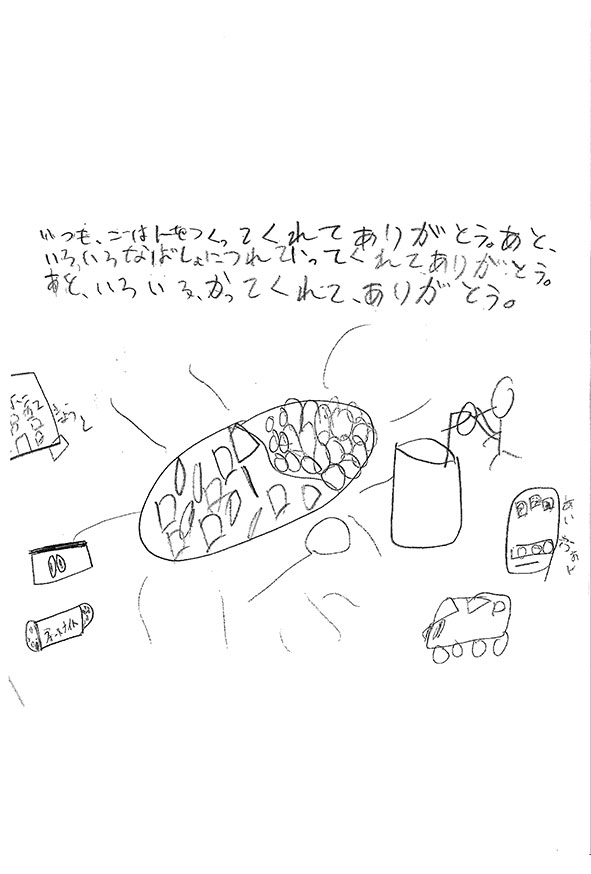 いつも、ごはんをつくってくれてありがとう。あと、
いろいろなばしょにつれていってくれてありがとう。
あと、いろいろ、かってくれて、ありがとう。